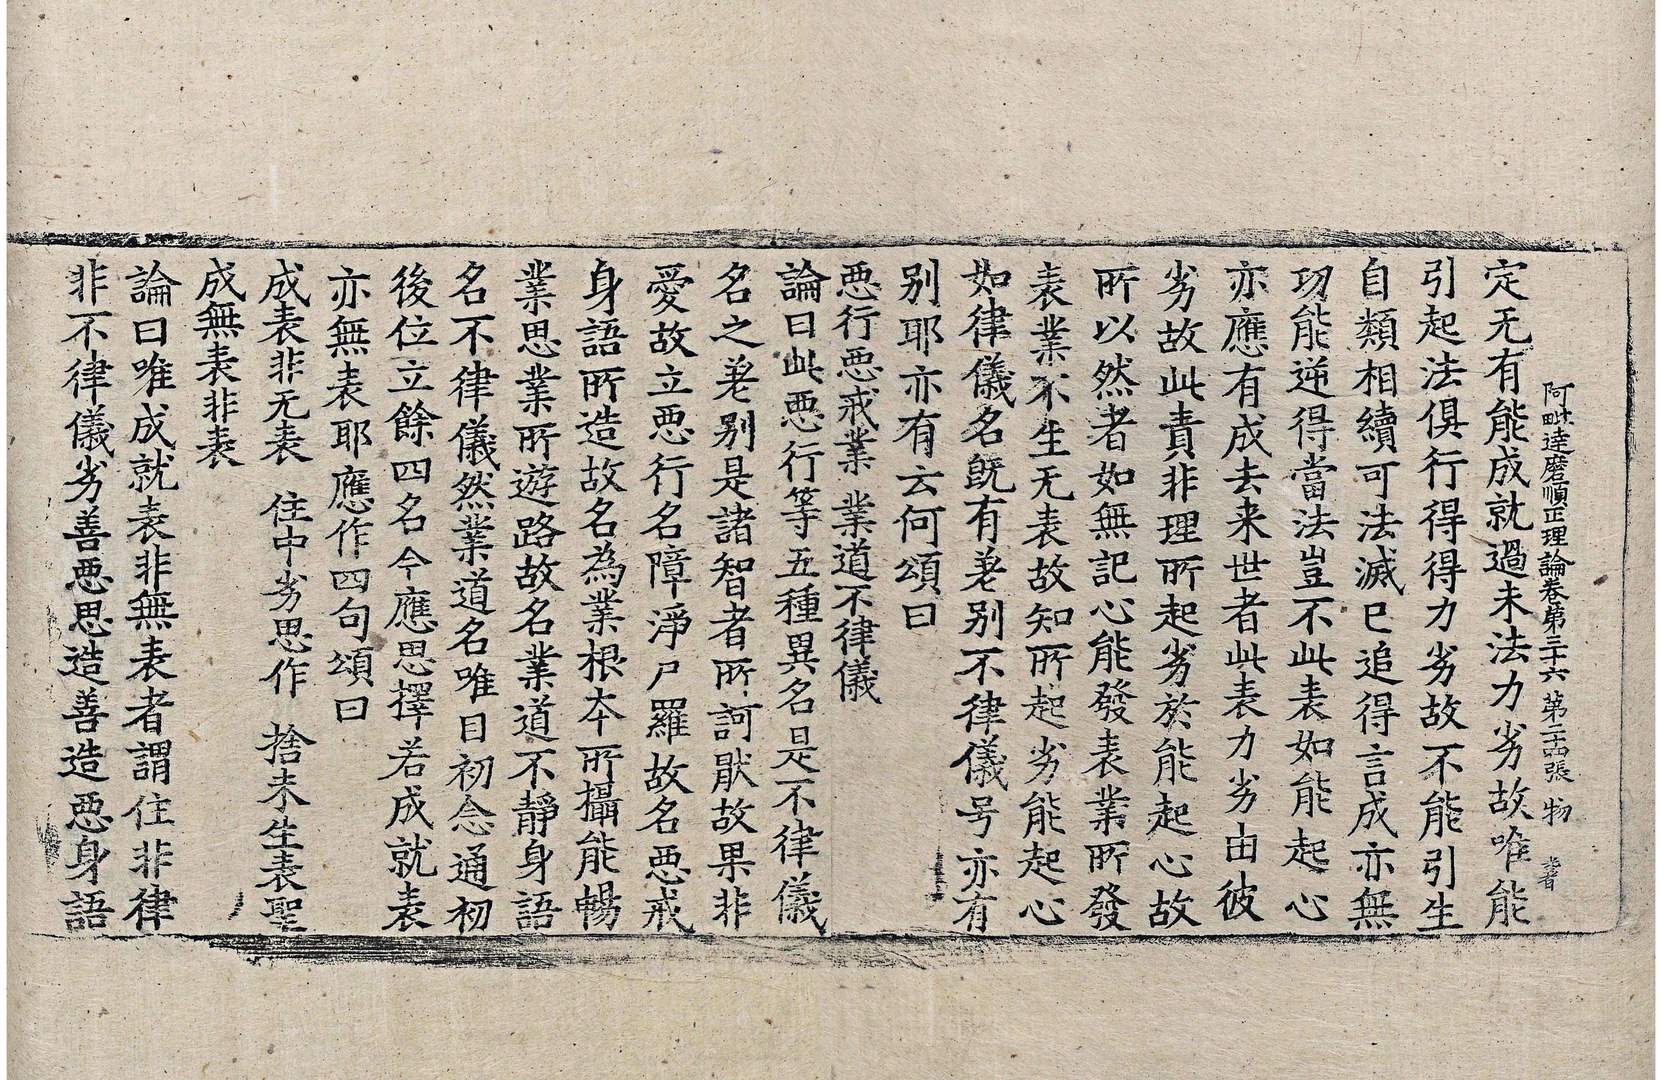 阿毗達磨順正理論卷第三十六 第二十四張 物
定无有能成就過未法力劣故唯能
引起法俱行得得力劣故不能引生
自類相續可法滅已追得言成亦無
功能逆得當法豈不此表如能起心
亦應有成去来世者此表力劣由彼
劣故此責非理所起劣於能起心故
所以然者如無記心能發表業所發
表業不生无表故知所起劣能起心
如律儀名既有差别不律儀号亦有
别耶亦有云何頌曰
惡行惡戒業 業道不律儀
論曰此惡行等五種異名是不律儀
名之差别是諸智者所訶猒故果非
愛故立惡行名障淨尸羅故名惡戒
身語所造故名為業根本所攝能暢
業思業所遊路故名業道不靜身語
名不律儀然業道名唯目初念通初
後位立餘四名今應思擇若成就表
亦無表耶應作四句頌曰
成表非无表 住中劣思作 捨未生表聖
成無表非表
論曰唯成就表非無表者謂住非律
非不律儀劣善惡思造善造惡身語